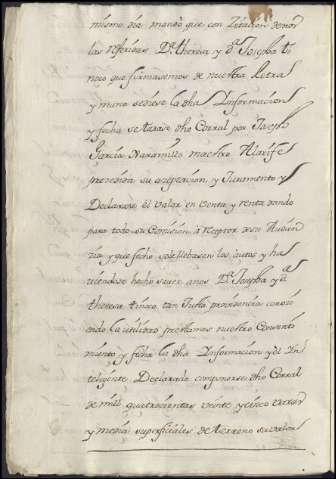 mismo dia mandò que con Zitacion
las referidas D.ª theresa y D.ª Josepha ti
neo que firmasemos de nuestra Letra
y mano se diese la dha Informacion
y fecha se tasase dho Corral por Joseph
Garcia Naramillo maestro Alarife
prezedida su azeptacion, y Juramento y
Declarase el Valor en Venta y renta dando
para todo su Comision à rezeptor de su Audien
zia y que fecho se le llebasen los autos y ha
viendose hecho saver anos D.ª Josepha y D.ª
theresa tineo, tan Justa providencia conozi
endo la utilidad prestamos nuestro Consenti
miento y fecha la dha Informacion y el In
teligente Declarado componerse dho Corral
de mil quatrozientas veinte y cinco varas
y media superfiziales de terreno su valor